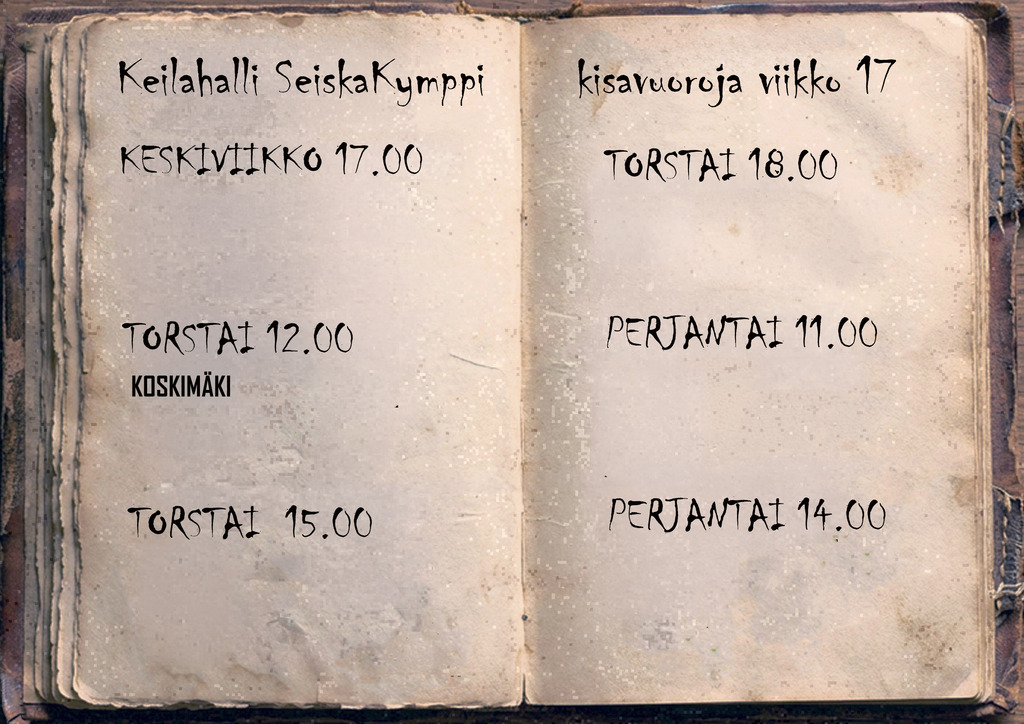 Keilahalli SeiskaKymppi
KESKIVIIKKO 17.00
TORSTAI 12.00
KOSKIMÄKI
TORSTAI 15.00
kisavuoroja viikko 17
TORSTAI 18.00
PERJANTAI 11.00
PERJANTAI 14.00